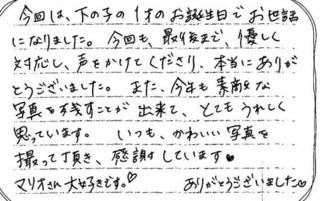 今回は、下の子の1才のお誕生日でお世話
になりました。今回も、最後まで、優しく
対応し、声をかけてくださり、本当にありが
とうございました。また、今年も素敵な
写真を残すことが出来て、とてもうれしく
思っています。いつも、かわいい写真を
撮って頂き、感謝しています♥
マリオさん大好きです。♡ ありがとうございました♡